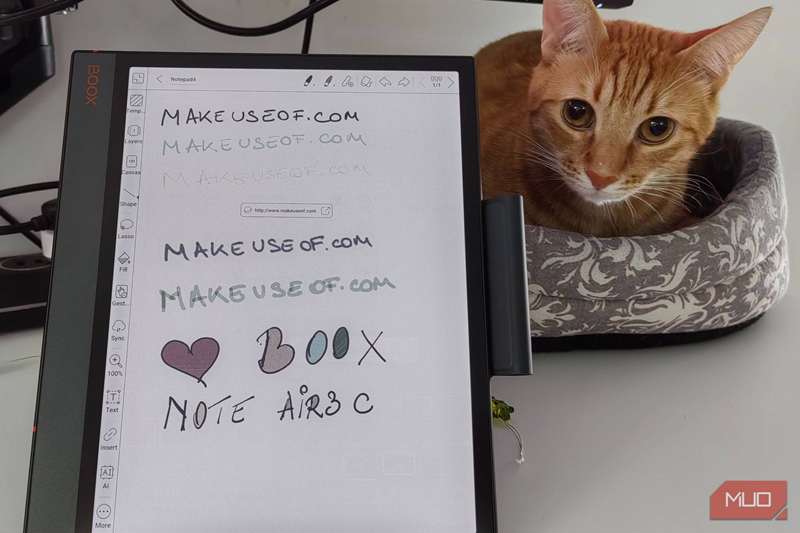 BOOX
Notepad4
1/1
Temp..
Layers
Canvas
Shape
Lasso
Fill
Gest..
Sync.
100%
Text
Insert
AI
AI
More
MAKEUSEOF.COM
MAKEUSEOF.COM
MAKEUSEOF.COM
http://www.makeuseof.com
MAKEUSEOF.COM
MAKEUSEOF.COM
BOOX
NOTE AiR3 C
MUO